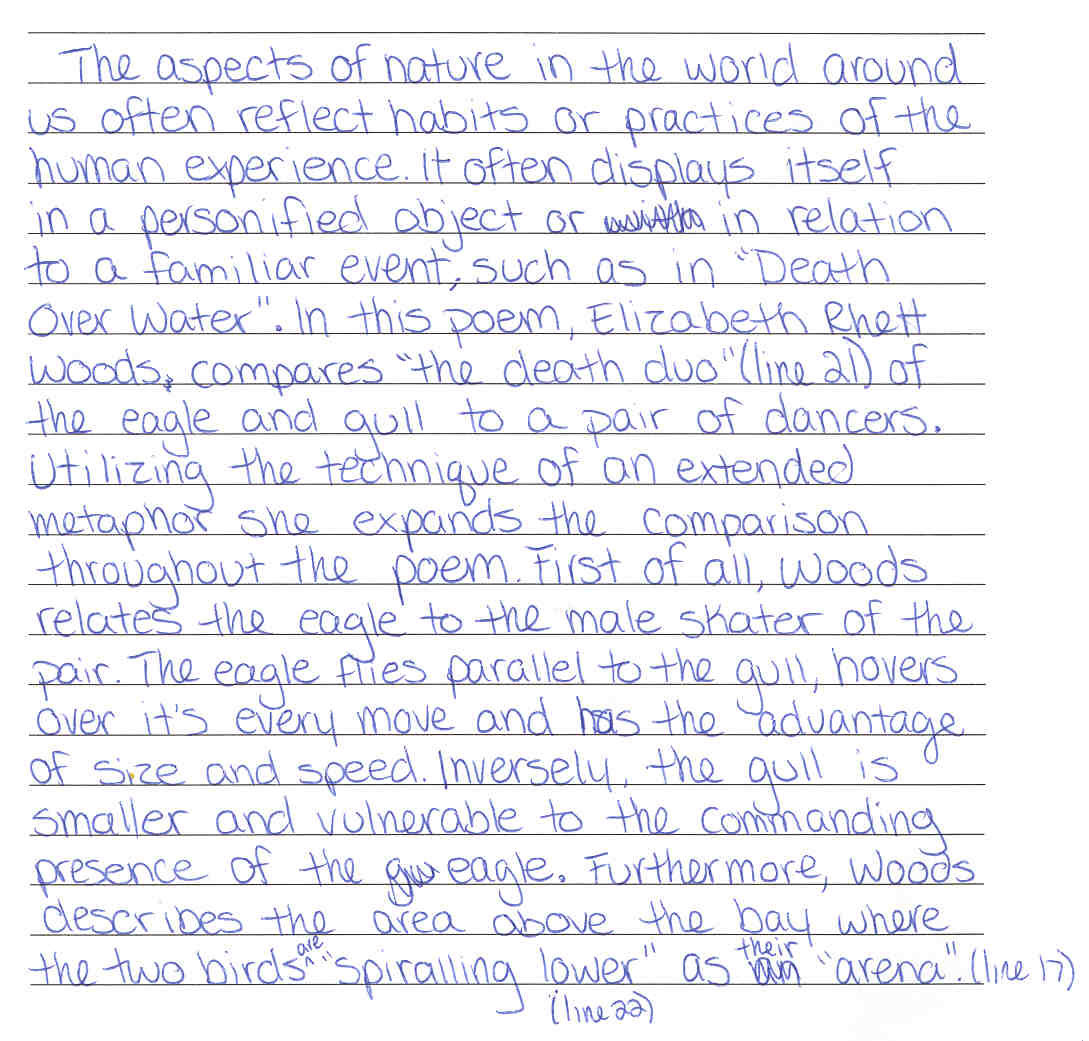 The aspects of nature in the world around
us often reflect habits or practices of the
human experience. It often displays itself
in a personified object or in relation
to a familiar event, such as in "Death
Over Water". In this poem, Elizabeth Rhett
Woods, compares "the death duo" (line 21) of
the eagle and gull to a pair of dancers.
Utilizing the technique of an extended
metaphor she expands the comparison
throughout the poem. First of all, Woods
relates the eagle to the male skater of the
pair. The eagle flies parallel to the gull, hovers
over it's every move and has the advantage
of size and speed. Inversely, the gull is
smaller and vulnerable to the commanding
presence of the eagle. Furthermore, Woods
describes the area above the bay where
the two birds are "spiralling lower" as their "arena". (line 17)
(line 22)